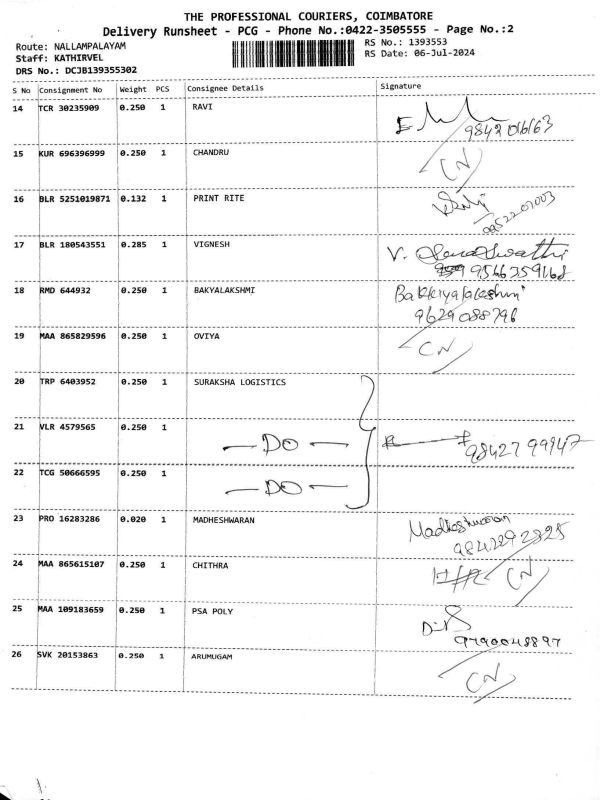 THE PROFESSIONAL COURIERS, COIMBATORE
Delivery Runsheet - PCG - Phone No.:0422-3505555 - Page No.:2
Route: NALLAMPALAYAM
Staff: KATHIRVEL
DRS No.: DCJB139355302
RS No.: 1393553
RS Date: 06-Jul-2024
S No Consignment No Weight PCS Consignee Details Signature
14 TCR 30235909 0.250 1 RAVI
15 KUR 696396999 0.250 1 CHANDRU CN
16 BLR 5251019871 0.132 1 PRINT RITE
17 BLR 180543551 0.285 1 VIGNESH V.
9566359168
18 RMD 644932 0.250 1 BAKYALAKSHMI Bakkiyalakshmi
9629088796
19 MAA 865829596 0.250 1 OVIYA CN
20 TRP 6403952 0.250 1 SURAKSHA LOGISTICS
21 VLR 4579565 0.250 1 — DO — 9842799947
22 TCG 50666595 0.250 1 — DO —
23 PRO 16283286 0.020 1 MADHESHWARAN Madheshwaran
24 MAA 865615107 0.250 1 CHITHRA CN
25 MAA 109183659 0.250 1 PSA POLY
9790048897
26 SVK 20153863 0.250 1 ARUMUGAM CN